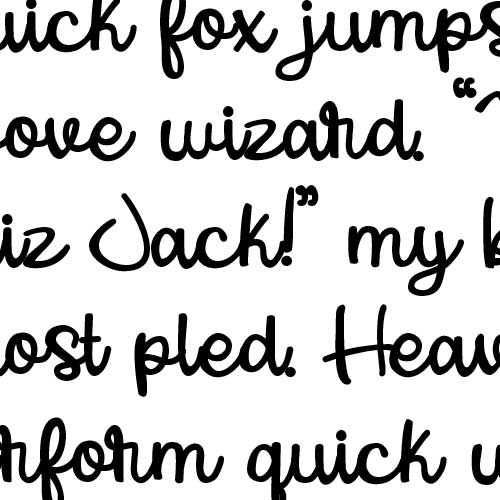 uick fox jumps
ove wizard. “
iz Jack!” my b
ost pled. Heav
rform quick w